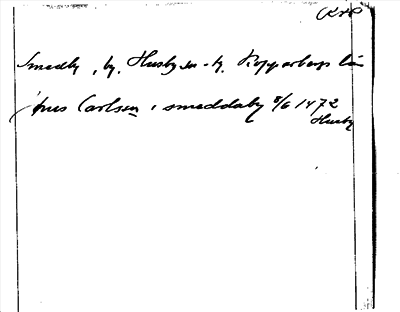 KHP
Smedby, by, Husby sn - h. Kopparbergs län
jwes Carlsson i smeddaby 8/6 1472
Husby